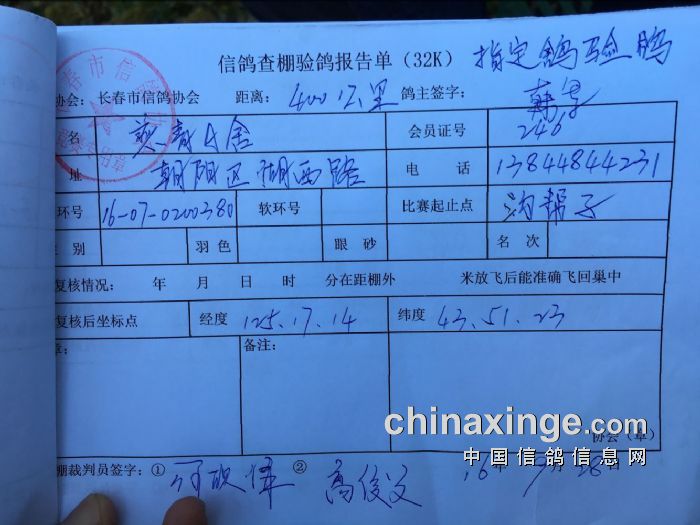 信鸽查棚验鸽报告单（32K） 指定鸽验鸽
协会：长春市信鸽协会 距离：400公里 鸽主签字：
名 会员证号 246
址 朝阳区湖西路 电 话 13844844231
环号 16-07-0200380 软环号 比赛起止点 沟帮子
别 羽色 眼砂 名次
复核情况： 年 月 日 时 分在距棚外 米放飞后能准确飞回巢中
复核后坐标点 经度 125.17.14 纬度 43.51.23
章： 备注：
chinaxinge.com
协会（章）
中国信鸽信息网
棚裁判员签字：① ② 高俊文 16年9月28日